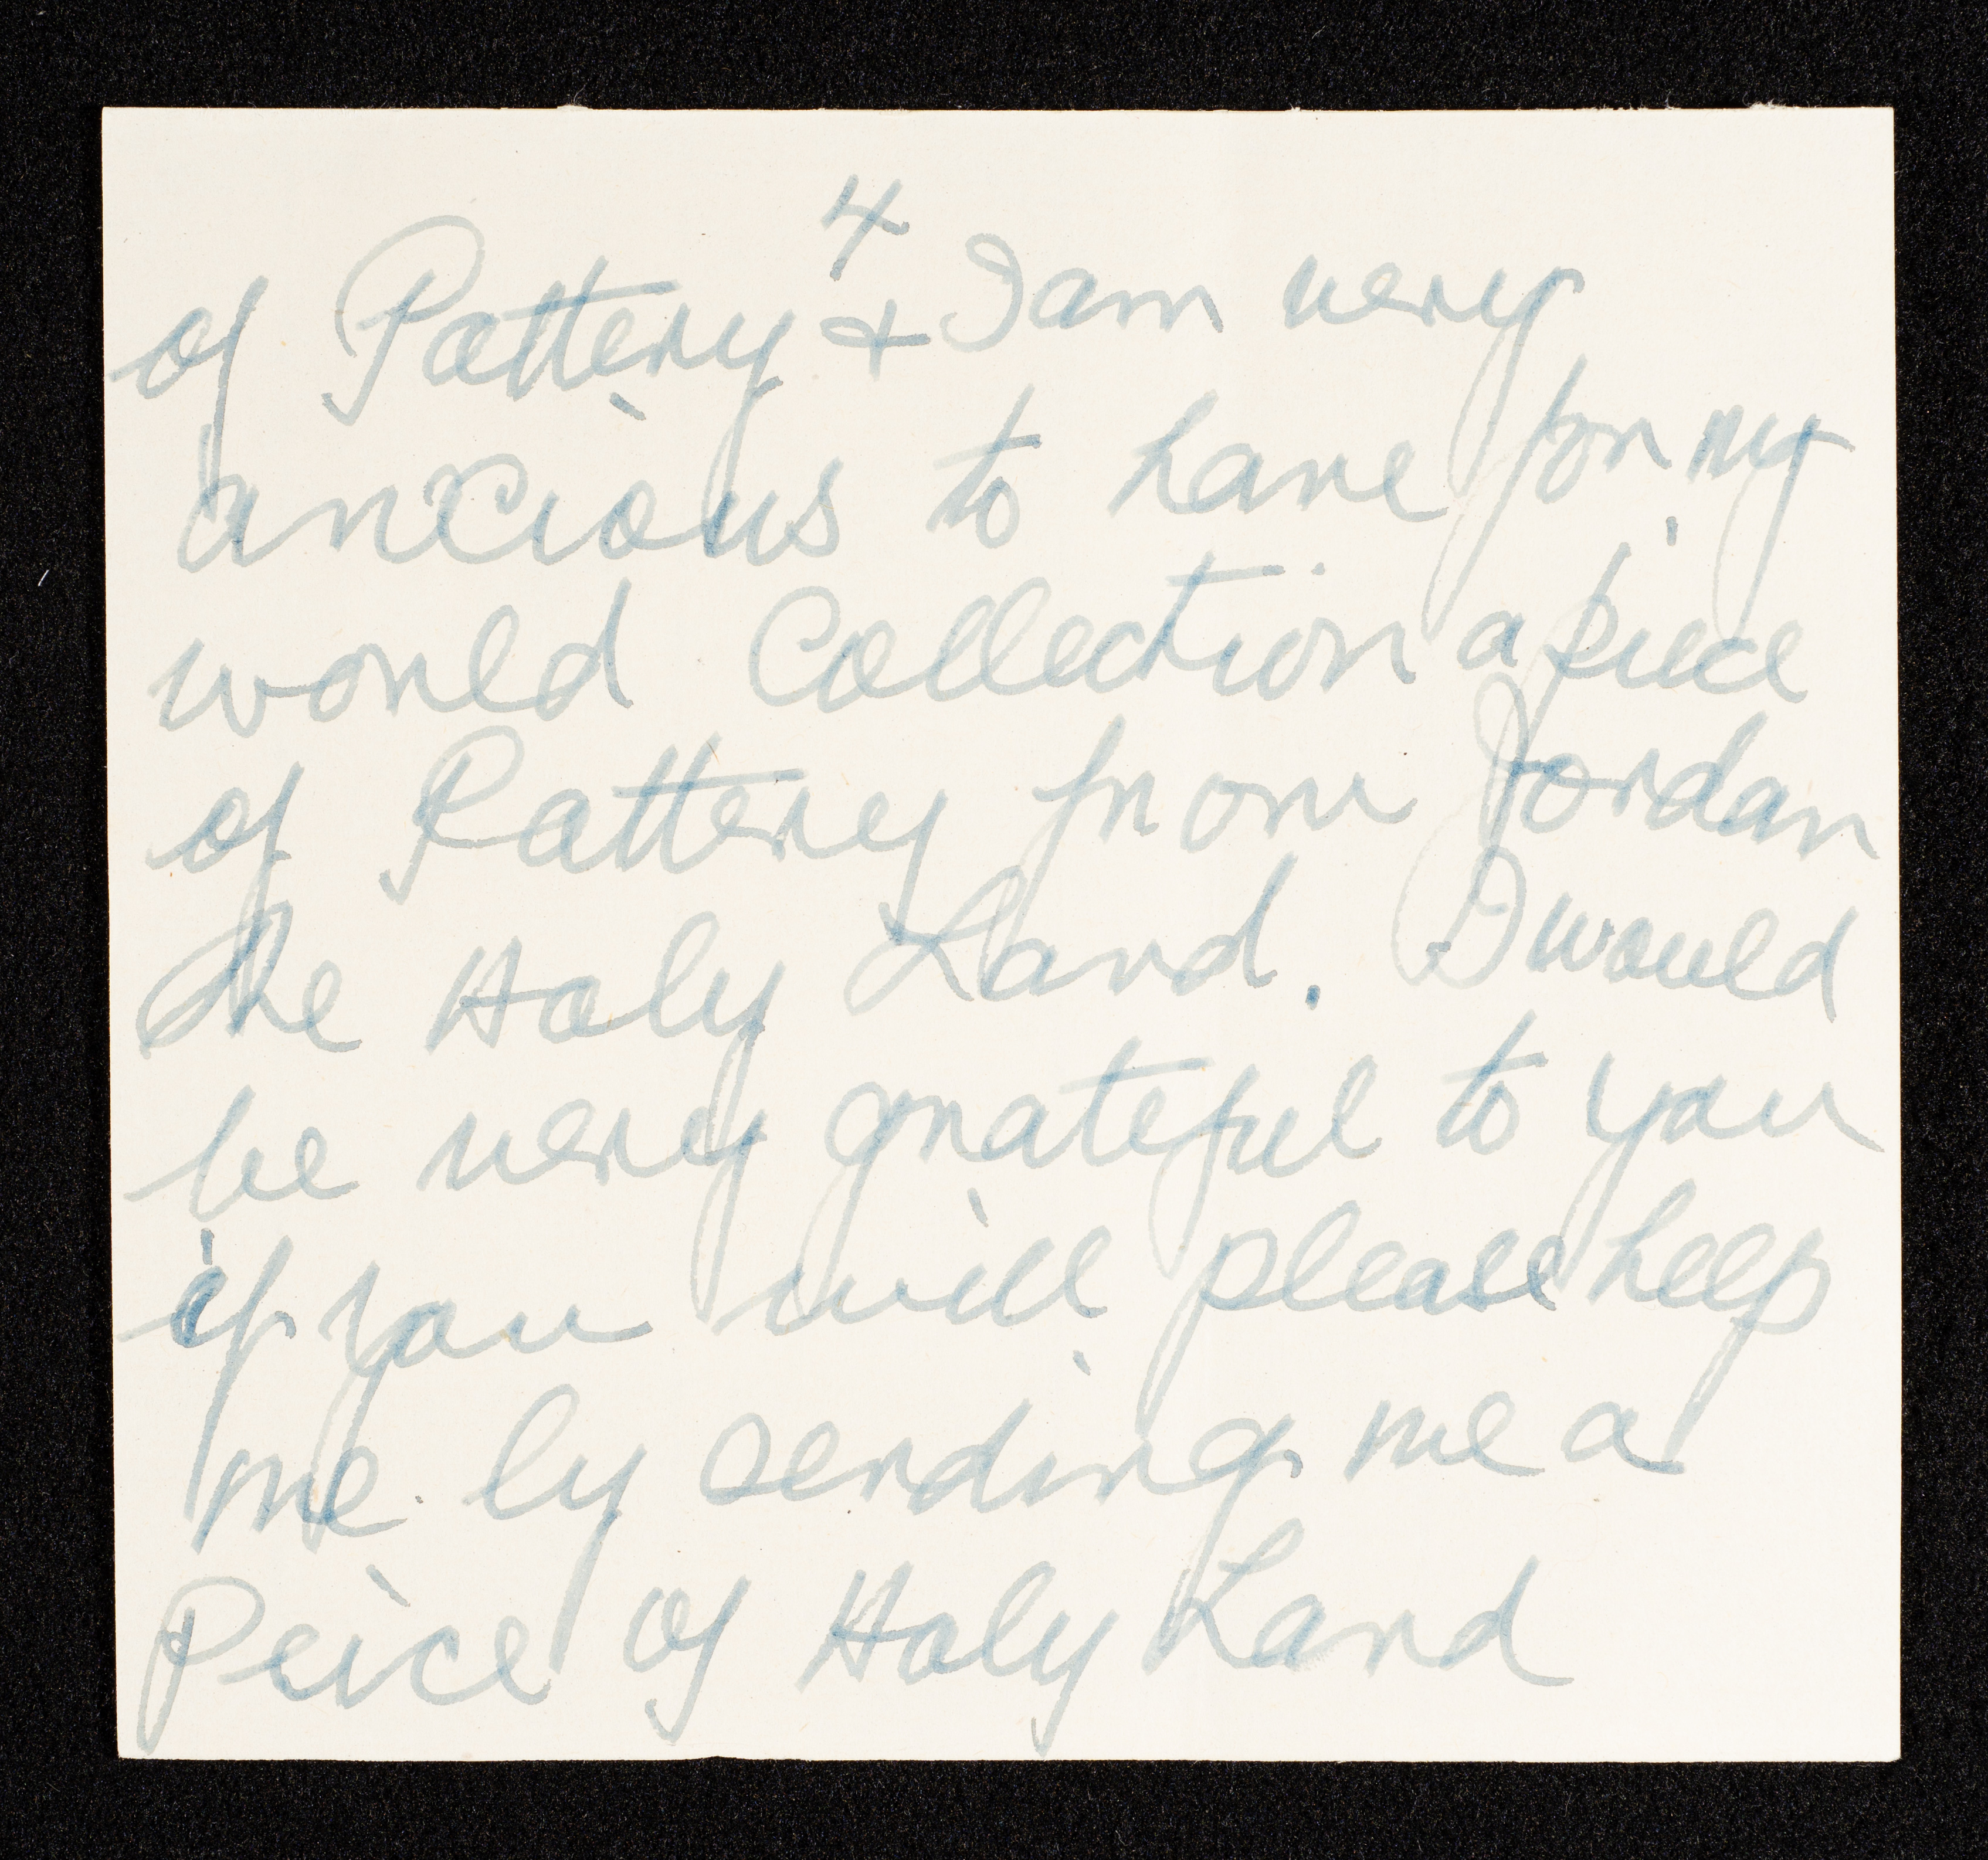 4
of Pottery & I am very
ancious to have for my
would Collection a piece
of Pottery from Jordan
the Holy Land. I would
be very grateful to you
if you will please help
me by sending me a
Peice of Holy Land